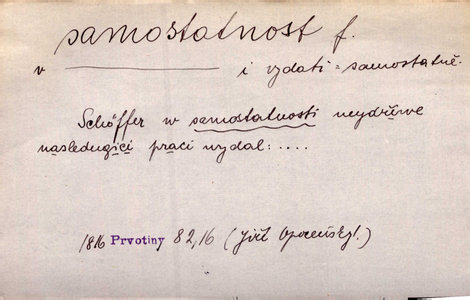 samostatnost f.
v ——— i vydati = samostatně.
Schöffer w samostatnosti neydřiwe
následugjcí práci wydal: ....
1816 Prvotiny 82,16 (Jiří Opočenský.)